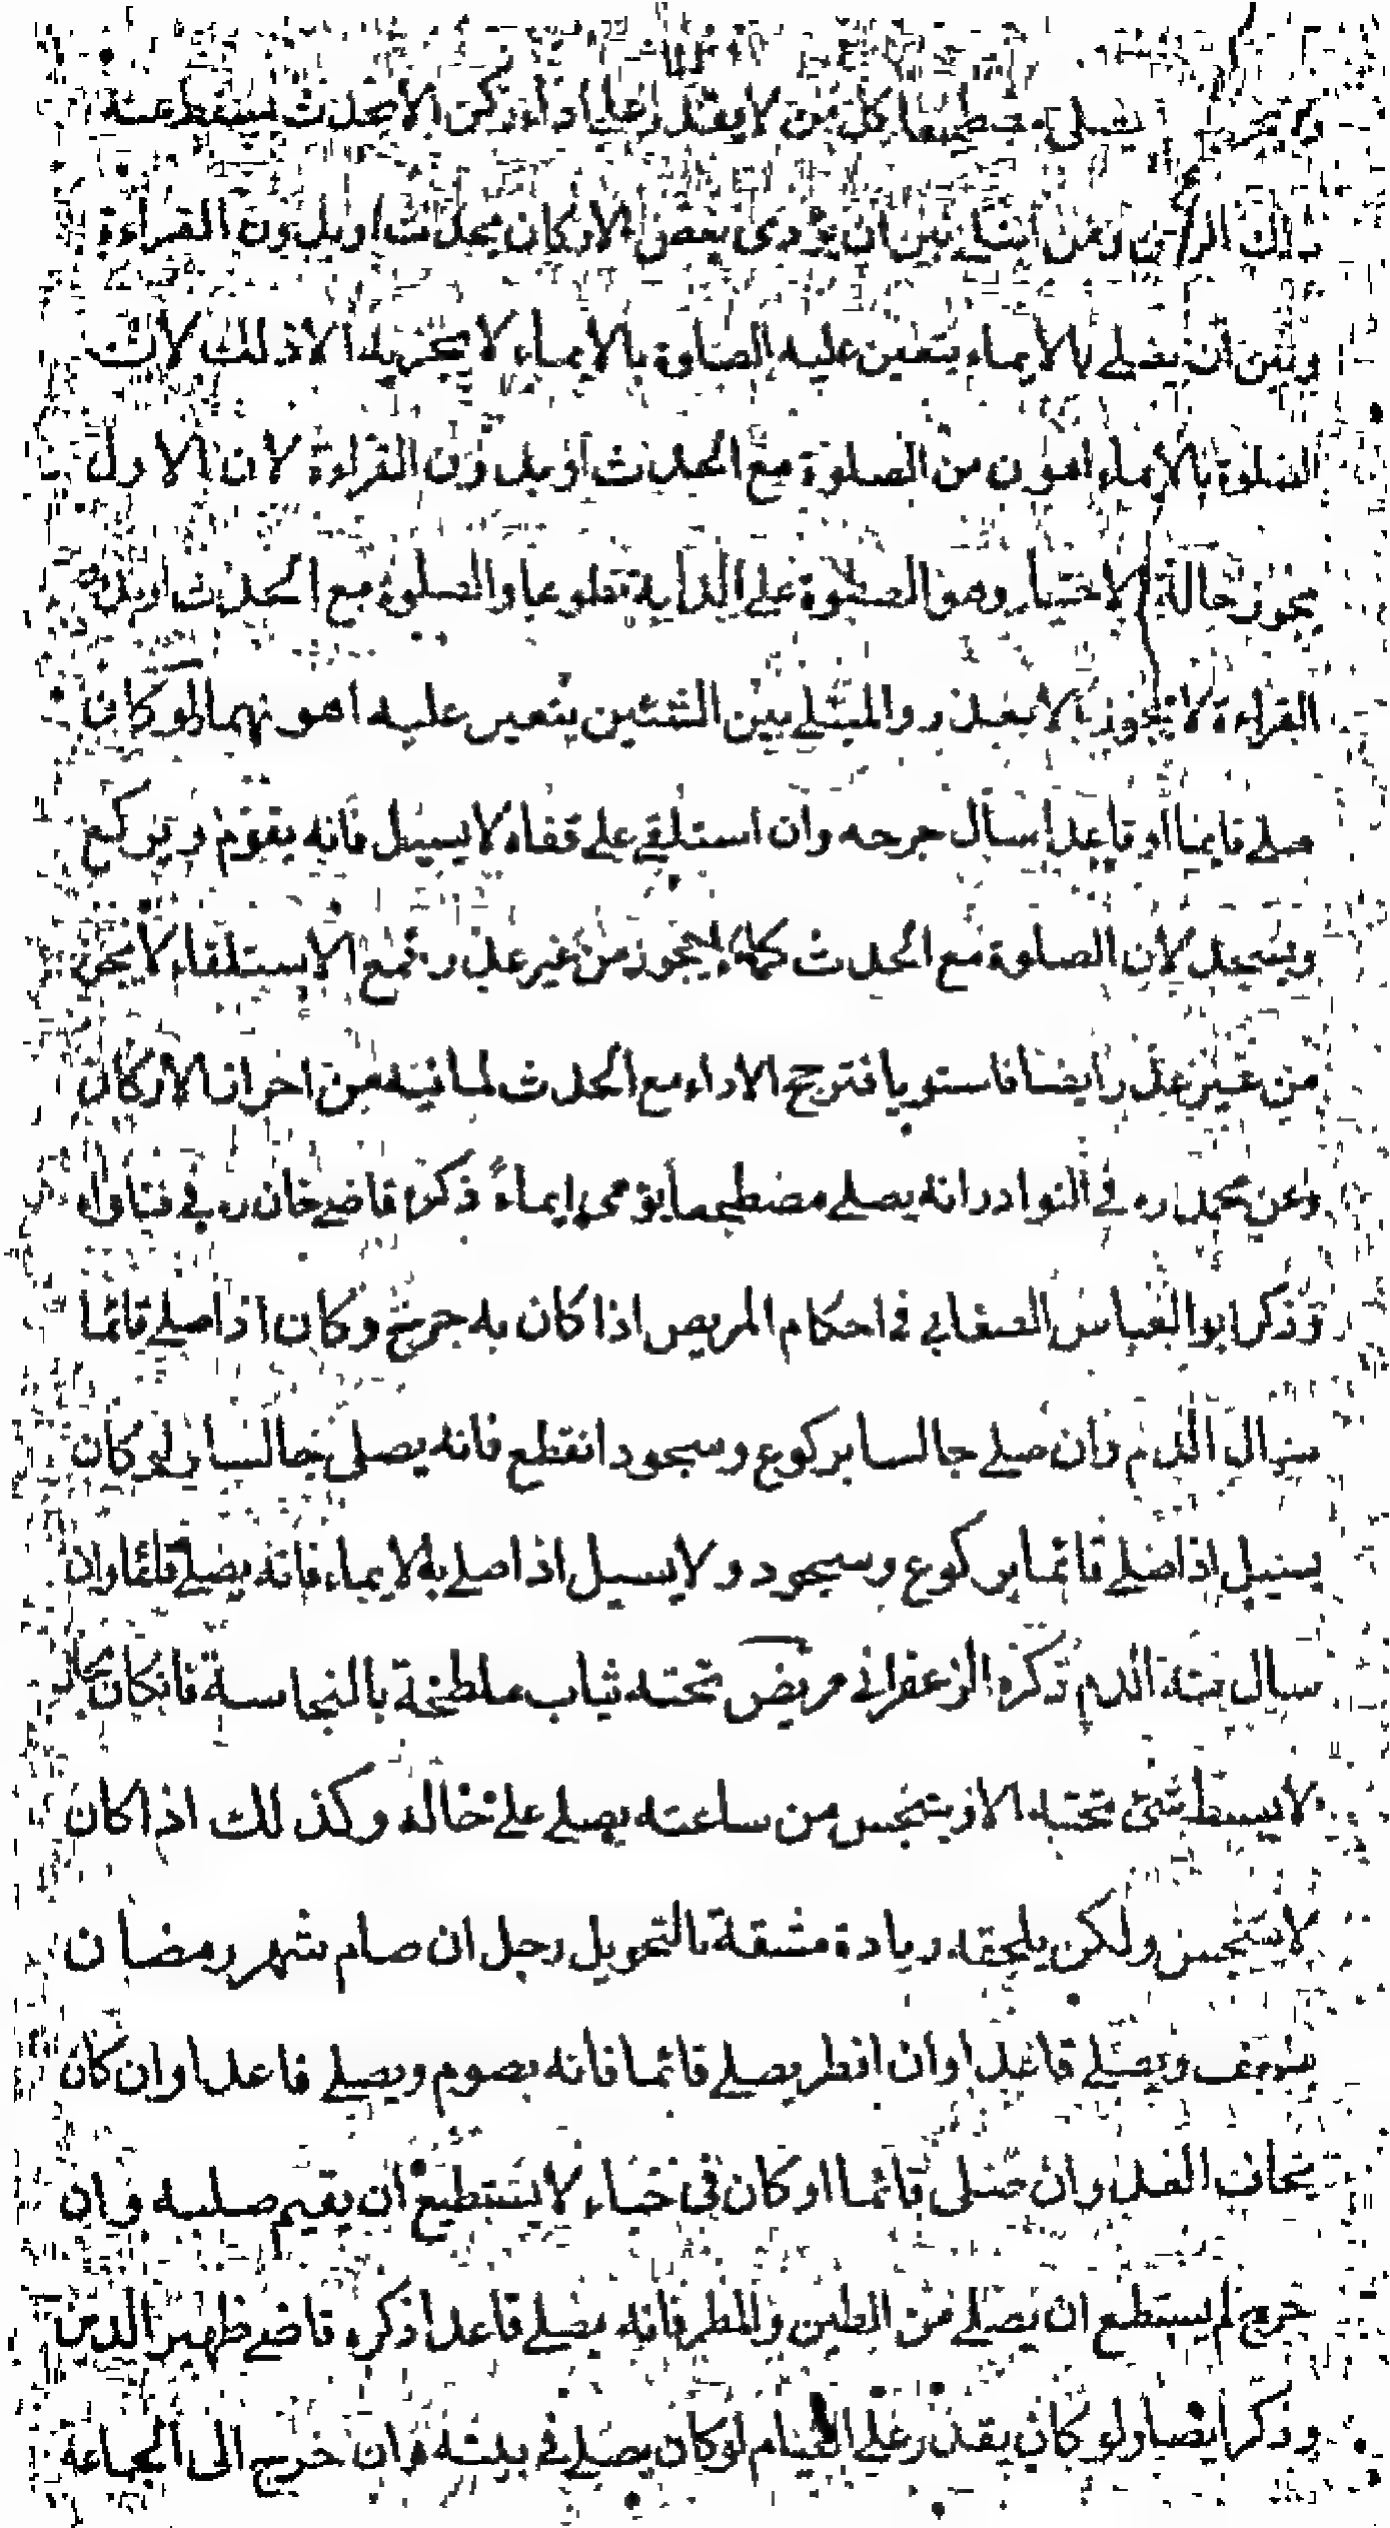 يصلى مضطجعا كل من لا يقدر على اداء ركن الا بحدث يسقط عنه
ذلك الركن ومن ابتلى بين ان يؤدى بعض الاركان بحدث او بدون القراءة
وبين ان يصلے بالايماء يتعين عليه الصلوة بالايماء لا يجزيه الا ذلك لان
الصلوة بالايماء اهون من الصلوة مع الحدث او بدون القراءة لان الاول
يجوز حالة الاختيار وهو الصلوة علے الدابة تطوعا والصلوة مع الحدث او بدون
القراءة لا تجوز الا بعذر والمبتلے بين الشئين يتعين عليه اهونهما لو كان
صلے قايما او قاعدا سال جرحه وان استلقے علے قفاه لا يسيل فانه يقوم ويركع
ويسجد لان الصلوة مع الحدث كما لا يجوز من غير عذر فمع الاستلقاء لا يجوز
من غير عذر ايضا فاستويا فترجح الاداء مع الحدث لما فيه من احراز الاركان
وعن محمد ره في النوادر انه يصلے مضطجعا يومى ايماء ذكره قاضے خان ره في فتاواه
وذكر ابو العباس في احكام المريض اذا كان به جرح وكان اذا صلے قائما
سال الدم وان صلے جالسا بركوع وسجود انقطع فانه يصلى جالسا ولو كان
يسيل اذا صلے قائما بركوع وسجود ولا يسيل اذا صلے بالايماء فانه يصلے قائما وان
سال منه الدم ذكره الزعفرانے مريض تحته ثياب ملطخة بالنجاسة فان كان بحال
لا يبسط شئ تحته الا ويتنجس من ساعته يصلے علے حاله وكذلك اذا كان
لا يتنجس ولكن يلحقه زيادة مشقة بالتحويل رجل ان صام شهر رمضان
يضعف ويصلے قاعدا وان افطر يصلے قائما فانه يصوم ويصلے قاعدا وان كان
يخاف العدو ان صلى قائما او كان فى خباء لا يستطيع ان يقيم صلبه وان
خرج لم يستطع ان يصلے من الطين والمطر فانه يصلے قاعدا ذكره قاضے ظهير الدين
وذكر ايضا ولو كان يقدر علے القيام لو كان يصلے في بيته وان خرج الى الجماعة